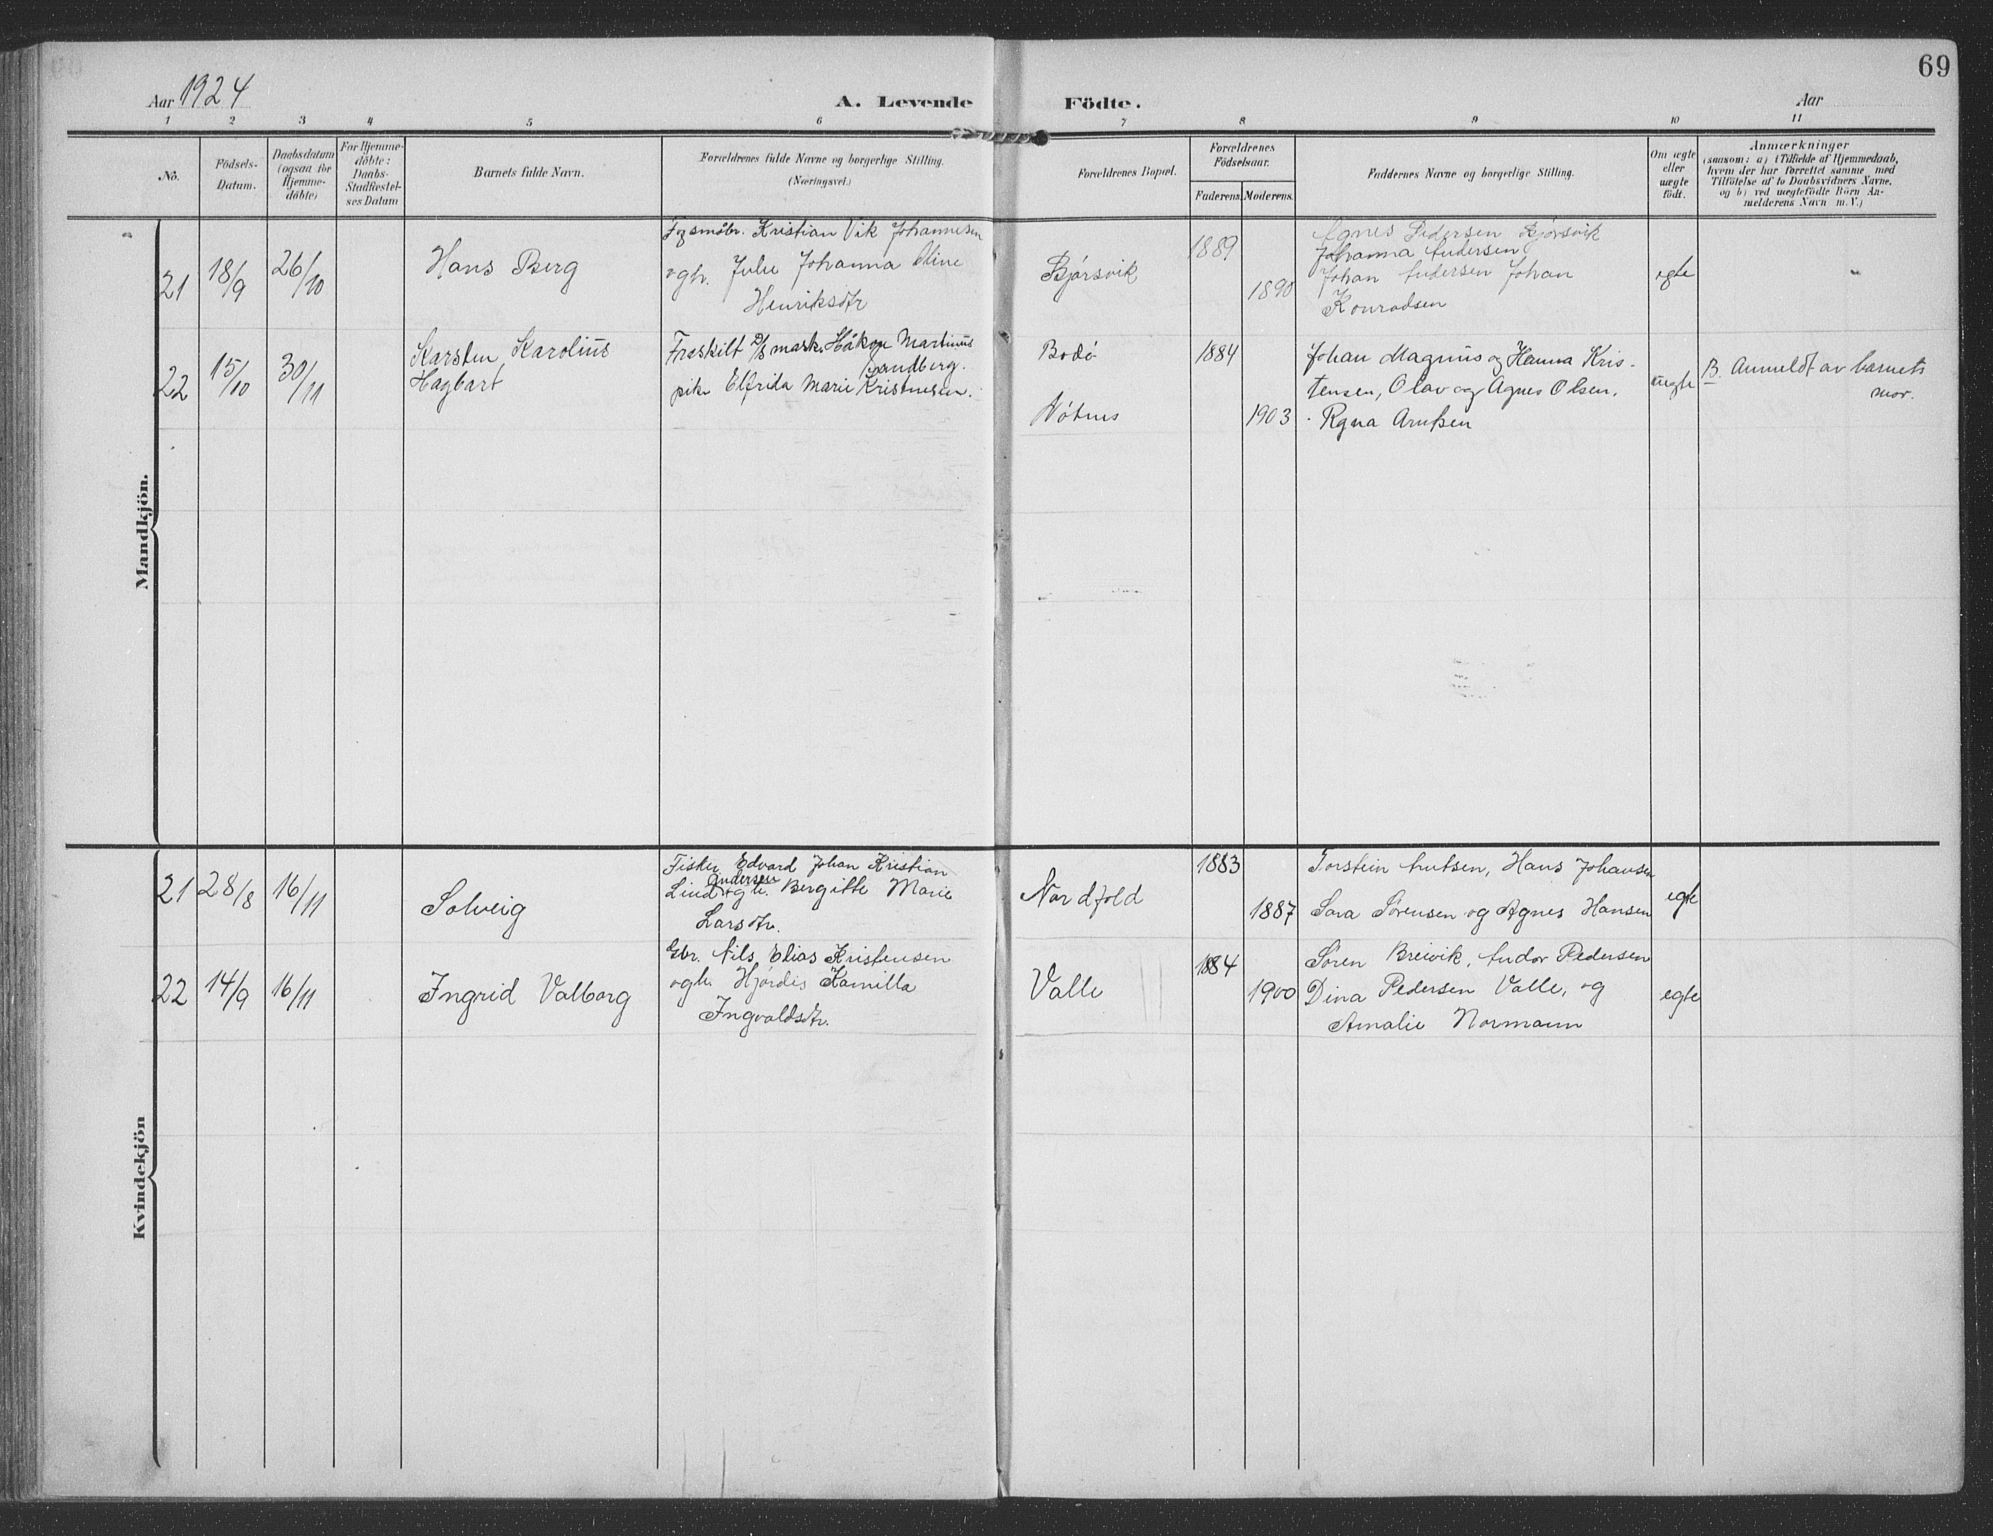 69
Aar 1924
A. Levende Födte.
Aar
1 2 3 4 5 6 7 8 9 10 11
No.
Födsels-
Datum.
Daabsdatum
(ogsaa for
Hjemme-
döbte)
For Hjemme-
döbte:
Daabs-
Stadfæstel-
ses Datum
Barnets fulde Navn.
Forældrenes fulde Navne og borgerlige Stilling.
(Næringsvei.)
Forældrenes Bopæl.
Forældrenes
Födselsaar.
Faderens. Moderens.
Faddernes Navne og borgerlige Stilling.
Om ægte
eller
uægte
födt.
Anmærkninger
(saasom: a) i Tilfælde af Hjemmedaab,
hvem der har forrettet samme med
Tilföielse af to Daabsvidners Navne,
og b) ved uegtefödte Börn An-
melderens Navn m. V.)
Mandkjön.
21
18/9
26/10
Hans Berg
Kristian Vik Johannesen
ogh. Julie Johanna Oline
Henriksdtr
Bjørsvik
1889
1890
Agnes Pedersen Bjørsvik
Johanna Andersen
Johan Andersen Johan
Konradsen
egte
22
15/10
30/11
Karsten Karolius
Hagbart
Fraskilt D/S mask. Håkon Martinus
Sandberg.
pike Elfrida Marie Kristensen.
Bodø
1884
1903
Johan Magnus og Hanna Kris-
tensen, Olav og Agnes Olsen,
Arntsen
uegte
B. Anmeldt av barnets
mor.
Kvindekjön
21
28/8
16/11
Solveig
Fisker Edvard Johan Kristian
Andersen
Lind ogh. Bergitte Marie
Larsdtr.
Nordfold
1883
1887
Torstein Arntsen, Hans Johansen
Sara Sørensen og Agnes Hansen
egte
22
14/9
16/11
Ingrid Valborg
Gbr. Nils Elias Kristensen
ogh. Hjørdis Kamilla
Ingvaldsdtr.
Valle
1884
1900
Søren Breivik, Andor Pedersen
Dina Pedersen Valle, og
Amalie Normann
egte